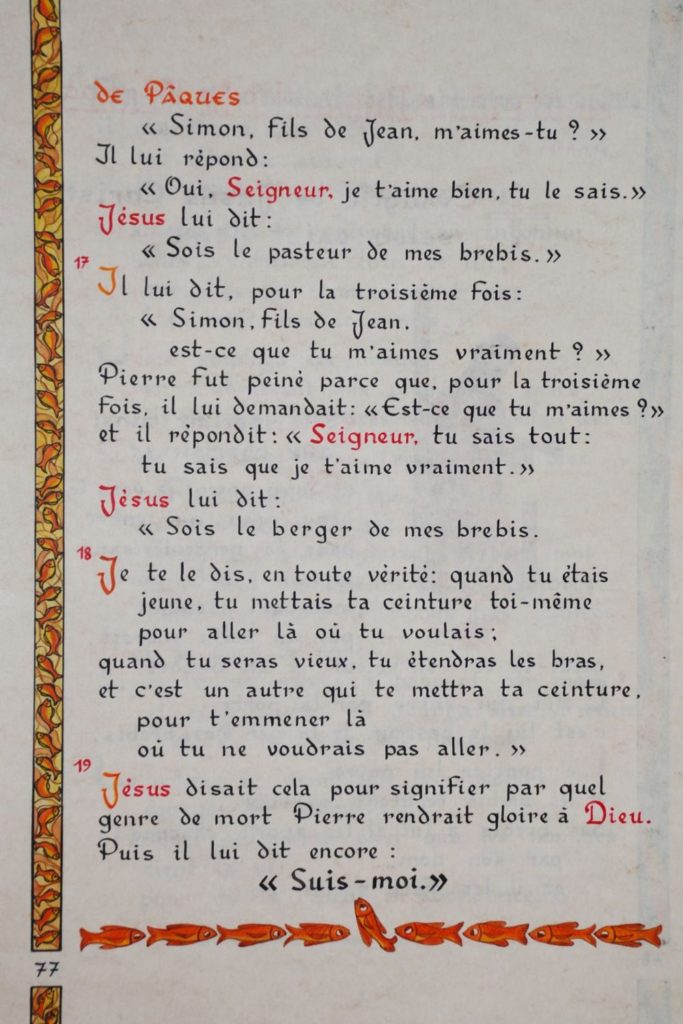 de Pâques
« Simon, fils de Jean, m'aimes-tu ? »
Il lui répond :
« Oui, Seigneur, je t'aime bien, tu le sais. »
Jésus lui dit :
« Sois le pasteur de mes brebis. »
17
Il lui dit, pour la troisième fois :
« Simon, fils de Jean.
est-ce que tu m'aimes vraiment ? »
Pierre fut peiné parce que, pour la troisième
fois, il lui demandait : « Est-ce que tu m'aimes ? »
et il répondit : « Seigneur, tu sais tout :
tu sais que je t'aime vraiment. »
Jésus lui dit :
« Sois le berger de mes brebis.
18
Je te le dis, en toute vérité : quand tu étais
jeune, tu mettais ta ceinture toi-même
pour aller là où tu voulais ;
quand tu seras vieux, tu étendras les bras,
et c'est un autre qui te mettra ta ceinture,
pour t'emmener là
où tu ne voudrais pas aller. »
19
Jésus disait cela pour signifier par quel
genre de mort Pierre rendrait gloire à Dieu.
Puis il lui dit encore :
« Suis-moi. »
77